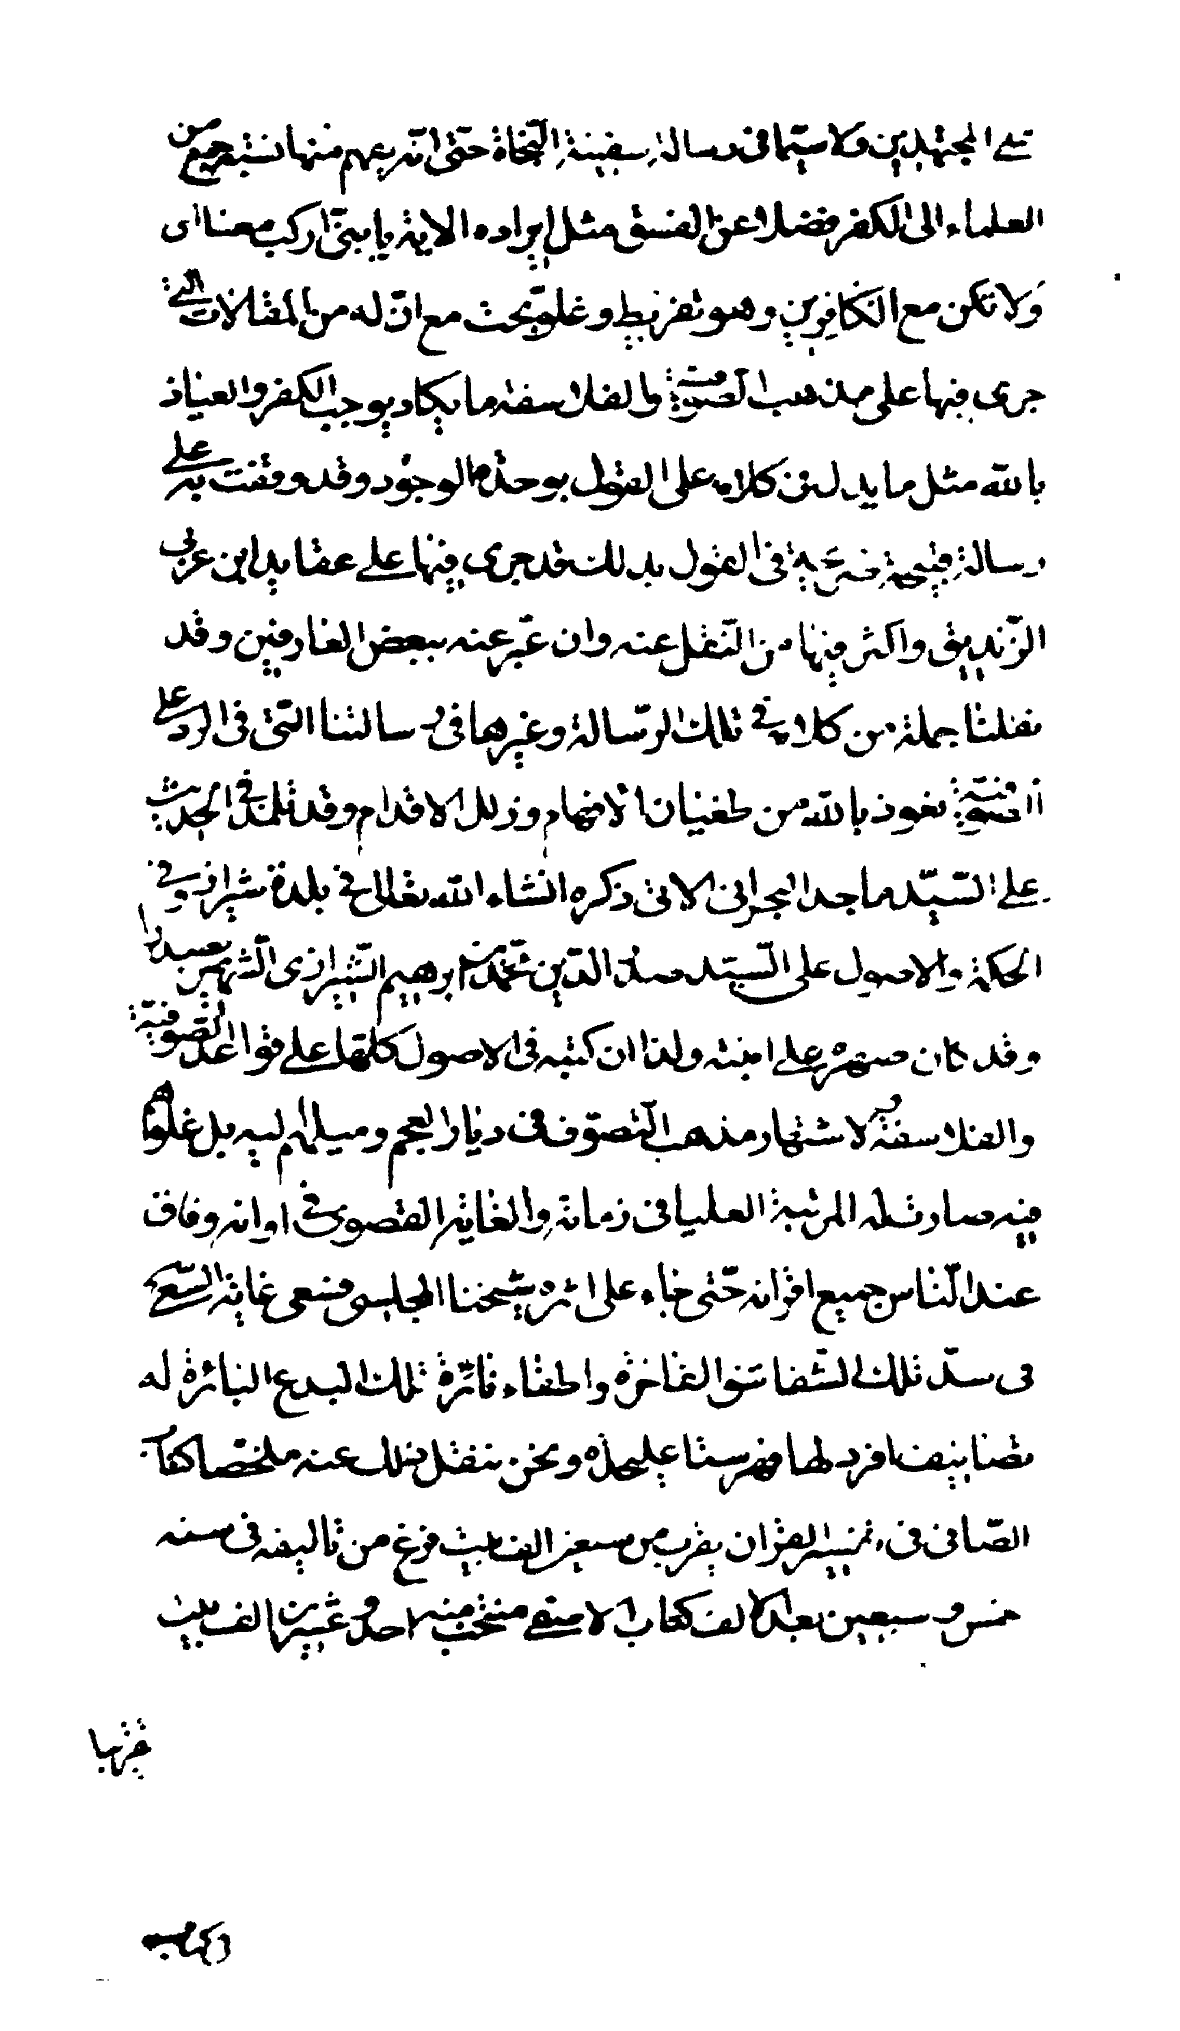 على المجتهدين ولا سيّما في رسالة سفينة النّجاة حتّى انّه يفهم منها نسبة جميع من
العلماء الى الكفر فضلا عن الفسق مثل ايراده الاية يا بنىّ اركب معنا اى
ولا تكن مع الكافرين وهو تفريط وغلوّ بحت مع انّ له من المقالات التي
جرى فيها على مذهب الصوفيّة والفلاسفه ما يكاد يوجب الكفر والعياذ
بالله مثل ما يدل في كلامه على القول بوحدة الوجود وقد وقفت له على
رسالة قبيحة صريحة في القول بذلك قد جرى فيها على عقايد ابن عربي
الزّنديق واكثر فيها من النّقل عنه وان عبّر عنه ببعض العارفين وقد
نقلنا جملة من كلامه في تلك الرّسالة وغيرها في رسالتنا التي في الرد على
الصوفيّة نعوذ بالله من طغيان الافهام وزلل الاقدام وقد تلمّذ في الحديث
على السّيّد ماجد البحراني الاتي ذكره انشاء الله تعالى في بلدة شيراز وفي
الحكمة والاصول على السّيّد صدر الدّين محمّد بن ابرهيم الشّيرازى الشّهير بصدرا
وقد كان صهره على ابنته ولذا ان كتبه في الاصول كلّها على قواعد الصّوفيّة
والفلاسفة ولاشتهار مذهب التّصوّف في ديار العجم وميلهم اليه بل غلوّهم
فيه صارت له المرتبة العليا في زمانه والغاية القصوى في اوانه وفاق
عند النّاس جميع اقرانه حتّى جاء على اثره شيخنا المجلسى فسعى غاية السّعي
في سدّ تلك الشّقاشق الفاغرة واطفاء نائرة تلك البدع البائرة له
تصانيف افرد لها فهرستا عليحدة ونحن ننقل ذلك عنه ملخّصا كتاب
الصّافي في تفسير القران يقرب من سبعين الف بيت فرغ من تاليفه في سنه
خمس وسبعين بعد الالف كتاب الاصفى منتخب منه احد وعشرين الف بيت